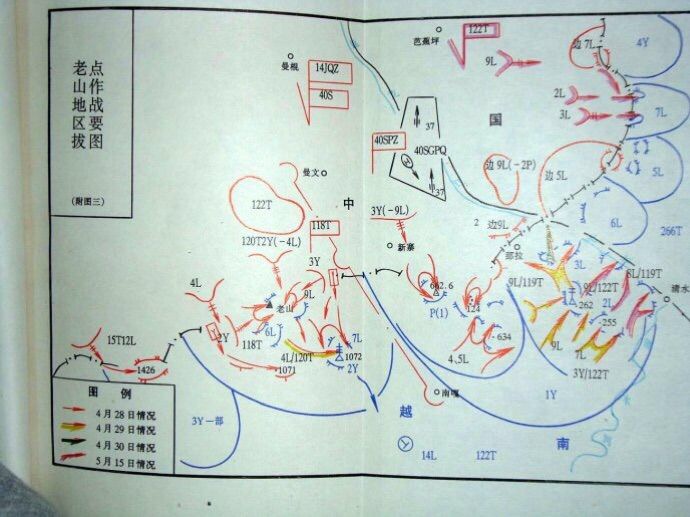 老山地区拔
点作战要图
(附图三)
曼棍
14JQZ
40S
芭蕉坪
122T
9L
边7L
4Y
2L
3L
7L
国
37
40SPZ
40SGPQ
37
边9L(-2P)
边5L
5L
6L
266T
曼文
122T
中
3Y(-9L)
2
边9L
120T2Y(-4L)
118T
新寨
那拉
3Y
662.6
P(1)
3L
9L/119T
9L/122T
8L/119T
清水
4L
9L
老山
6L
124
262
2L
255
2Y
118T
7L
634
15T12L
4L/120T
1072
2Y
4、5L
9L
7L
3Y/122T
1426
1071
南嘎
1Y
图例
4月28日情况
4月29日情况
4月30日情况
5月15日情况
3Y一部
越
南
14L
122T